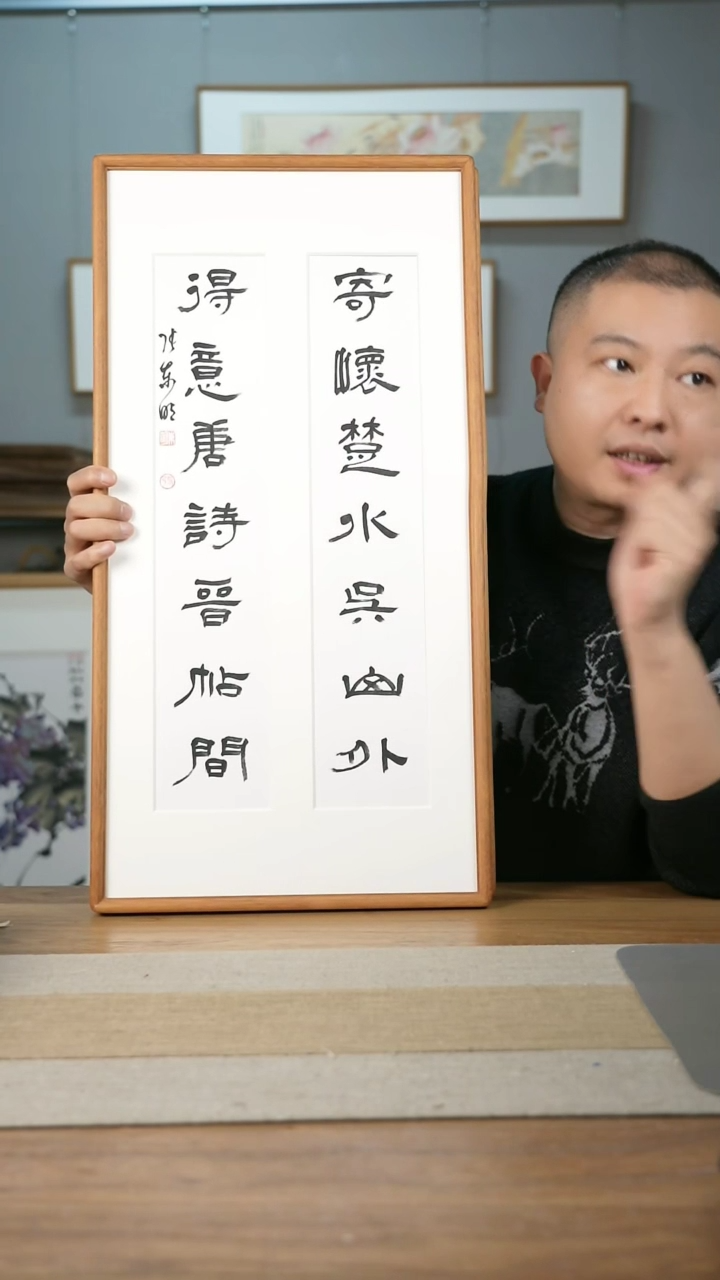 寄懷楚水吳山外
得意唐詩晉帖間
張東明